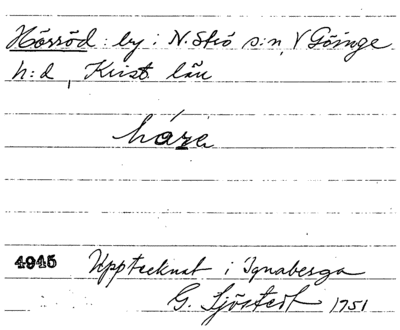 Hörröd: by: N. Strö s:n, V Göinge
h:d, Krist län
hárε
4945 Upptecknat i Ignaberga
G. Sjöstedt 1951